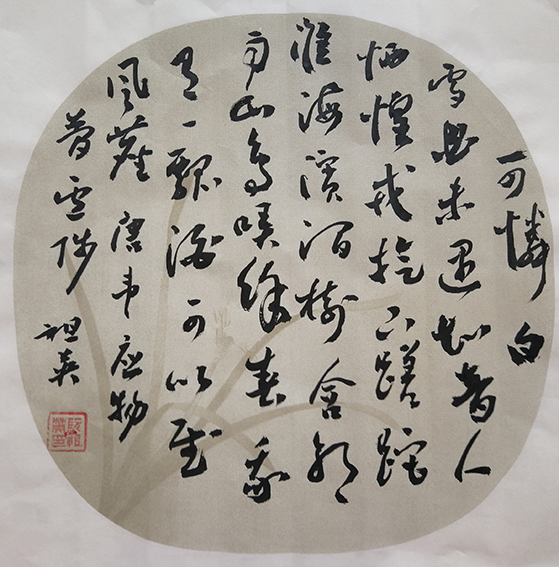 可憐白
雪曲未遇知音人
恓惶戎旅下蹉跎
淮海濱澗樹含朝
雨山鳥哢餘春我
有一瓢酒可以慰
風塵 唐韦应物
簡盧陟 祖英